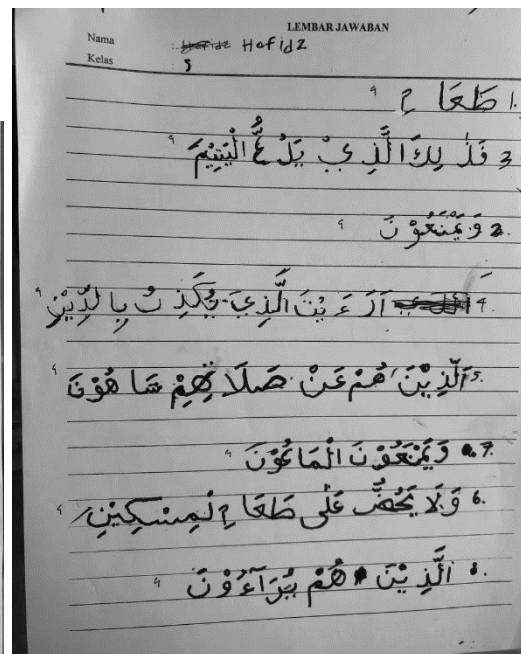 LEMBAR JAWABAN
Nama : Hafidz
Kelas : 5
1. طَعَا مِ ٩
3 فَذٰ لِكَ الَّذِيْ يَدُ عُّ الْيَتِيْمَ ٩
2. وَ يَمْنَعُوْ نَ ٩
4. اَرَ ءَ يْتَ الَّذِيْ يُكَذِّ بُ بِا لدِّيْنِ ٩
5. الَّذِيْنَ هُمْ عَنْ صَلَا تِهِمْ سَا هُوْنَ ٩
7. وَ يَمْنَعُوْ نَ الْمَا عُوْنَ ٩
6. وَ لَا يَحُضُّ عَلٰى طَعَا مِ الْمِسْكِيْنِ ٩
8. الَّذِ يْنَ هُمْ يُرَآءُوْنَ ٩